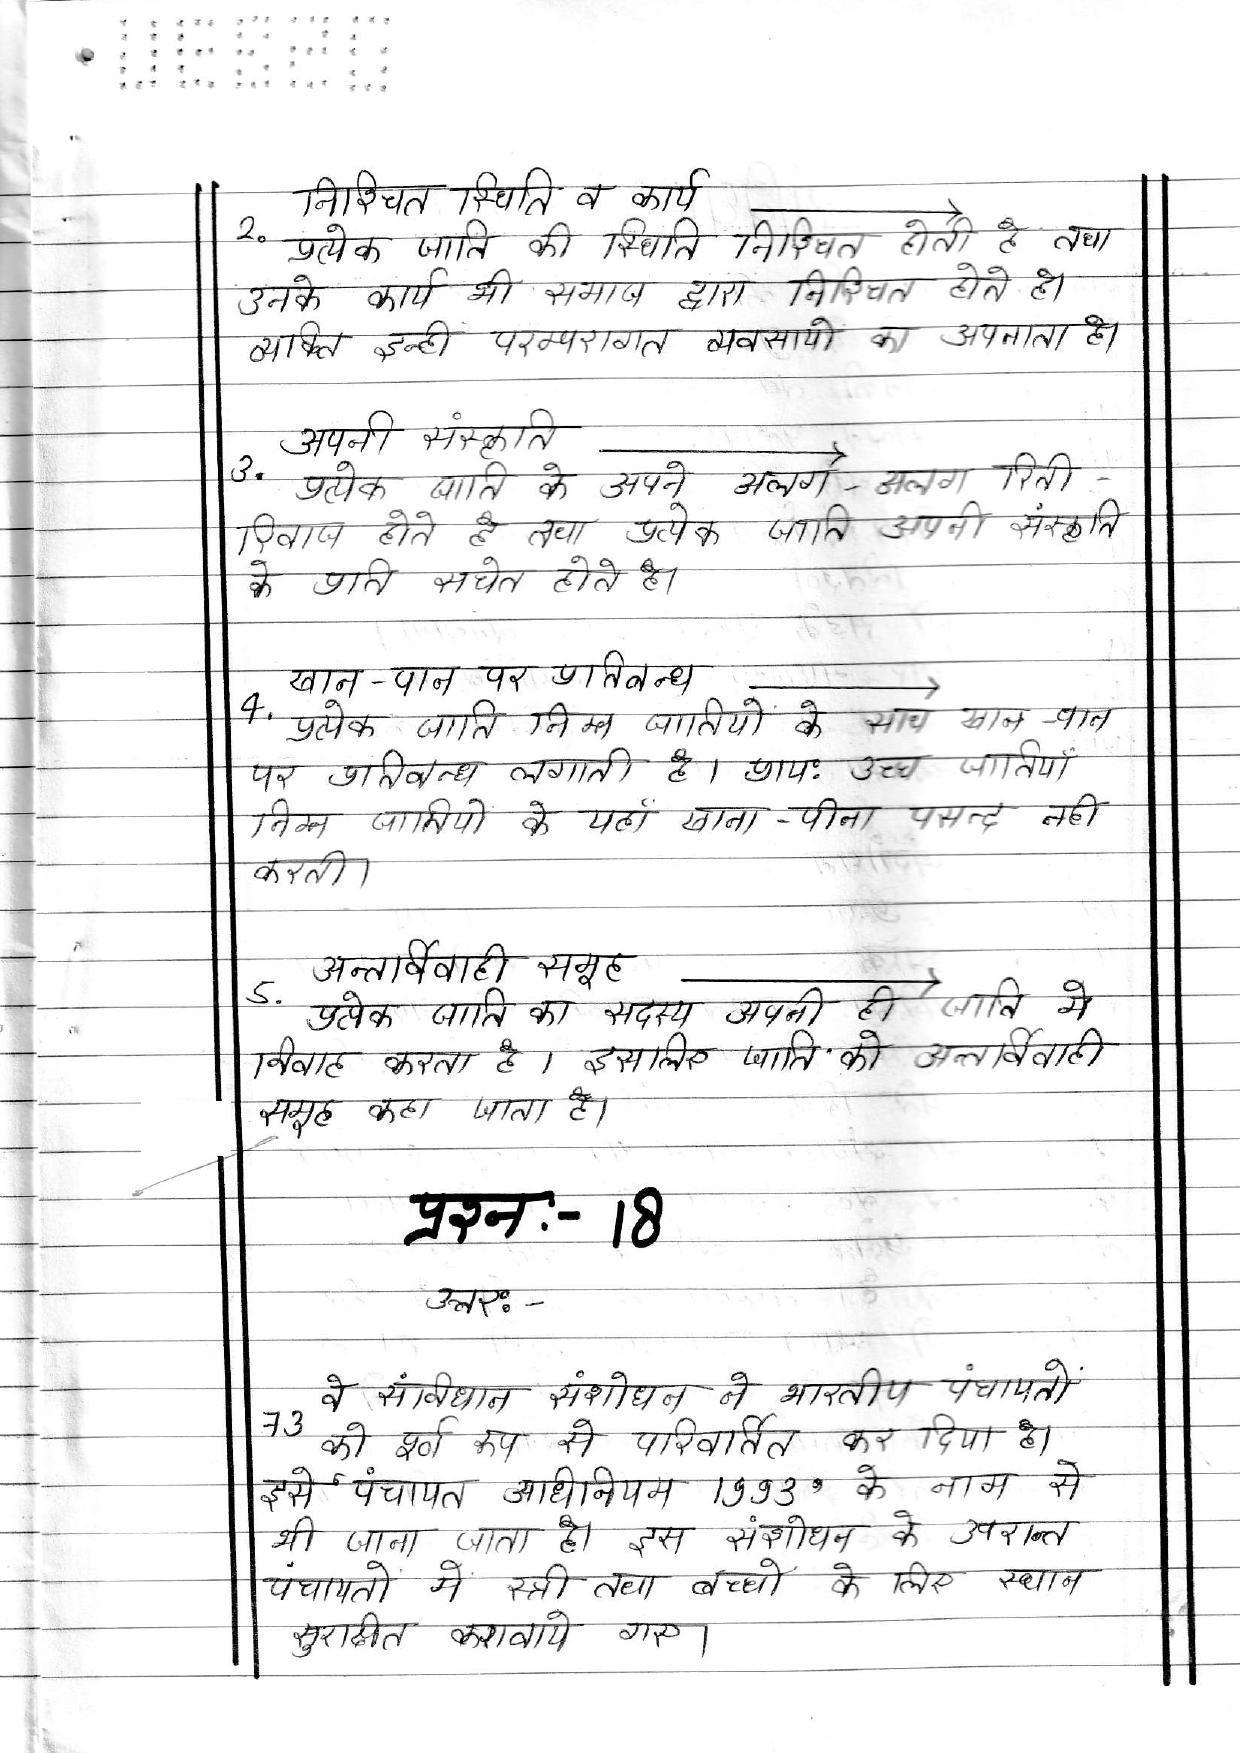 निश्चित स्थिति व कार्य
2. प्रत्येक जाति की स्थिति निश्चित होती है तथा
उनके कार्य भी समाज द्वारा निश्चित होते है।
व्यक्ति इन्ही परम्परागत व्यवसायो का अपनाता है।
अपनी संस्कृति
3. प्रत्येक जाति के अपने अलग - अलग रिती -
रिवाज होते है तथा प्रत्येक जाति अपनी संस्कृति
के प्रति सचेत होते है।
खान - पान पर प्रतिबन्ध
4. प्रत्येक जाति निम्न जातियों के साथ खान - पान
पर प्रतिबन्ध लगाती है। प्रायः उच्च जातियाँ
निम्न जातियो के यहाँ खाना - पीना पसन्द नही
करती।
अन्तर्विवाही समूह
5. प्रत्येक जाति का सदस्य अपनी ही जाति मे
विवाह करता है। इसलिए जाति को अन्तर्विवाही
समूह कहा जाता है।
प्रश्न :- 18
उत्तर :-
73 वे संविधान संशोधन ने भारतीय पंचायतों
को पूर्ण रूप से परिवर्तित कर दिया है।
इसे 'पंचायत अधिनियम 1993' के नाम से
भी जाना जाता है। इस संशोधन के उपरान्त
पंचायतो मे स्त्री तथा बच्चो के लिए स्थान
सुरक्षित करवाये गए।